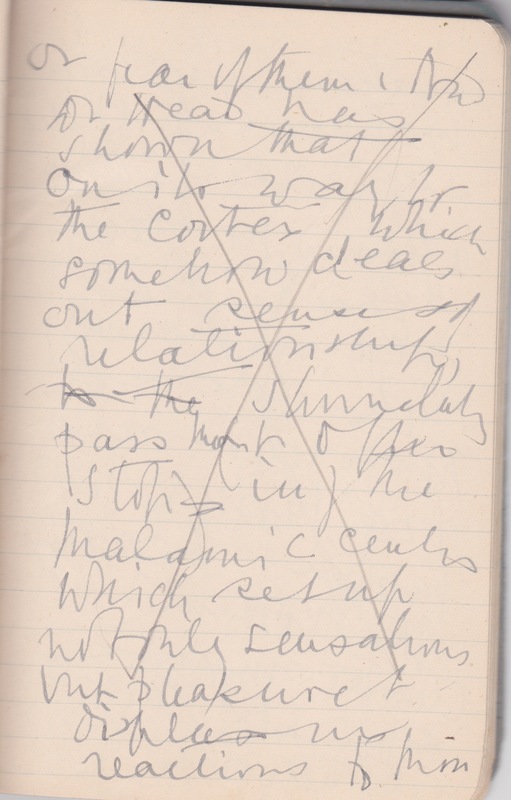 or fear of them. Now
Dr Head has
shown that
on its way to
the cortex, which
somehow deals
out sense of
relationship,
to the stimulus
pass
stops in the
thalamic centre
which set up
not only sensations
but pleasure &
displeasure
reactions to them